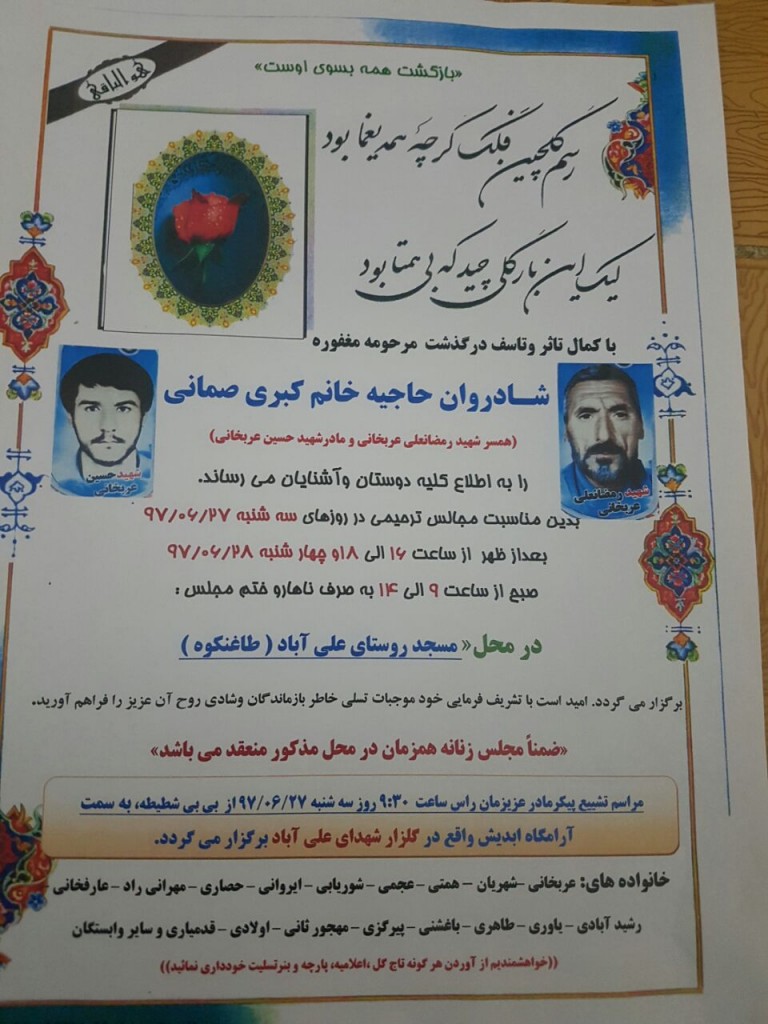 هو الباقی
«بازگشت همه بسوی اوست»
رسم گلچین فلک گرچه همه یغما بود
لیک این بار گلی چید که بی همتا بود
با کمال تاثر وتاسف درگذشت مرحومه مغفوره
شـادروان حاجیه خانم کبری صمانی
(همسر شهید رمضانعلی عربخانی و مادرشهید حسین عربخانی)
شهید حسین
عربخانی
شهید رمضانعلی
عربخانی
را به اطلاع کلیه دوستان وآشنایان می رساند.
بدین مناسبت مجالس ترحیمی در روزهای سه شنبه ۹۷/۰۶/۲۷
بعداز ظهر از ساعت ۱۶ الی ۱۸و چهار شنبه ۹۷/۰۶/۲۸
صبح از ساعت ۹ الی ۱۴ به صرف ناهارو ختم مجلس :
در محل« مسجد روستای علی آباد ( طاغنکوه )
برگزار می گردد. امید است با تشریف فرمایی خود موجبات تسلی خاطر بازماندگان وشادی روح آن عزیز را فراهم آورید.
«ضمناً مجلس زنانه همزمان در محل مذکور منعقد می باشد»
مراسم تشییع پیکرمادر عزیزمان راس ساعت ۹:۳۰ روز سه شنبه ۹۷/۰۶/۲۷ از بی بی شطیطه، به سمت
آرامگاه ابدیش واقع در گلزار شهدای علی آباد برگزار می گردد.
خانواده های: عربخانی –شهریان – همتی – عجمی – شوریابی – ایروانی – حصاری – مهرانی راد – عارفخانی
رشید آبادی – یاوری – طاهری – باغشنی – پیرگزی – مهجور ثانی – اولادی – قدمیاری و سایر وابستگان
((خواهشمندیم از آوردن هر گونه تاج گل ،اعلامیه، پارچه و بنرتسلیت خودداری نمائید))